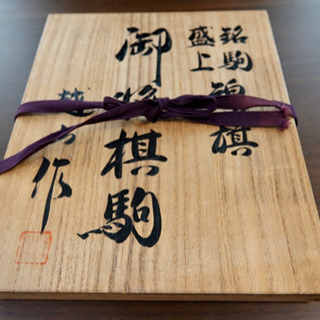 銘駒 錦旗
盛上
御将棋駒
作